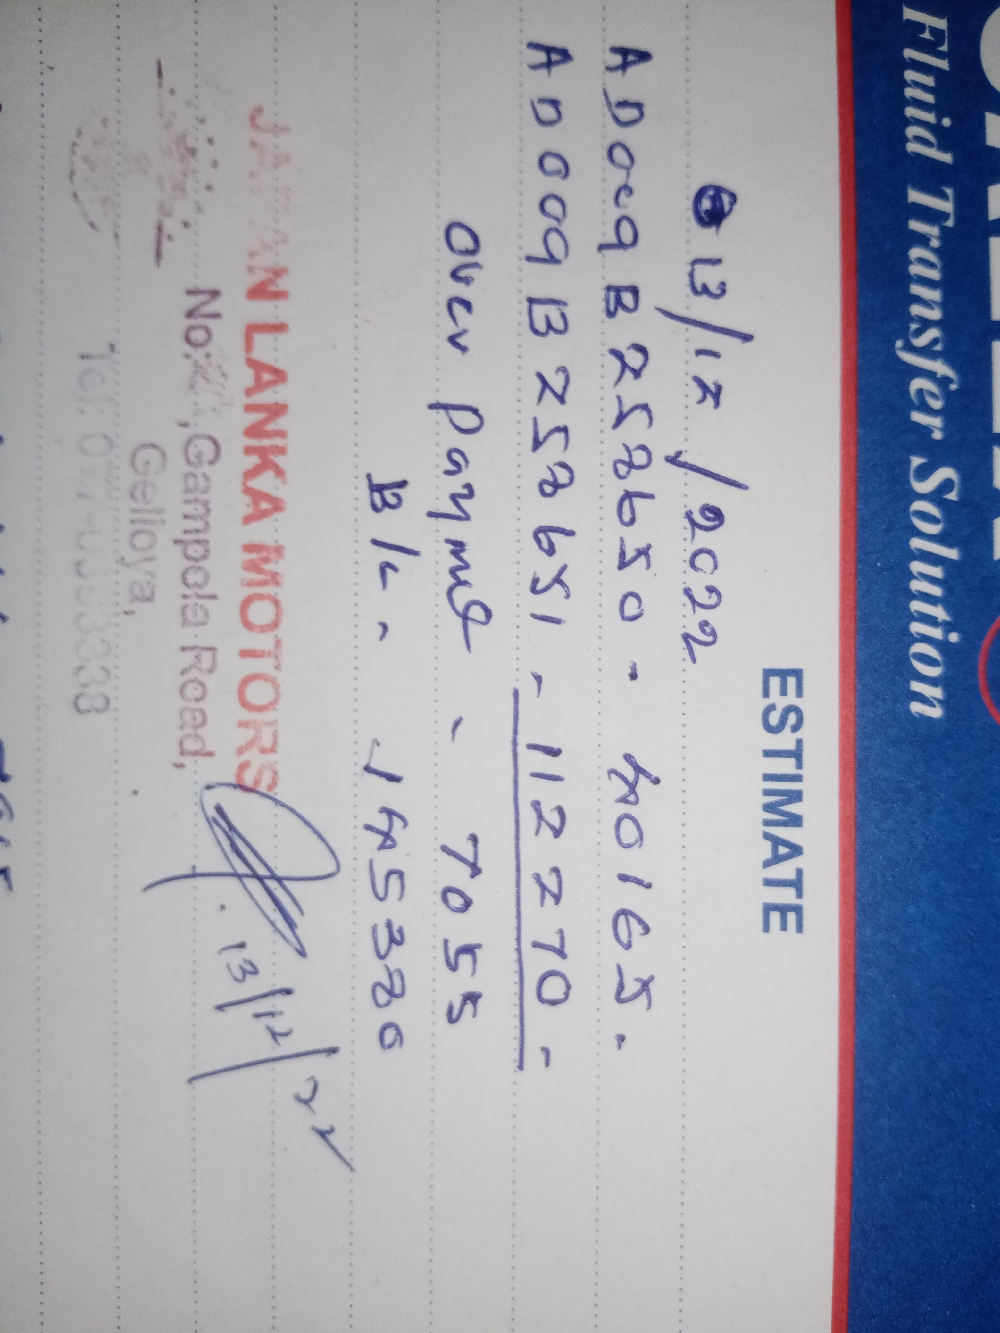 Fluid Transfer Solution
ESTIMATE
13/12/2022
AD009B258650 - 40165.
AD009B258651 - 112270 -
over payment - 7055
B/L - 145380
JAPAN LANKA MOTORS
Gampola Road,
Gelioya,
13/12/22